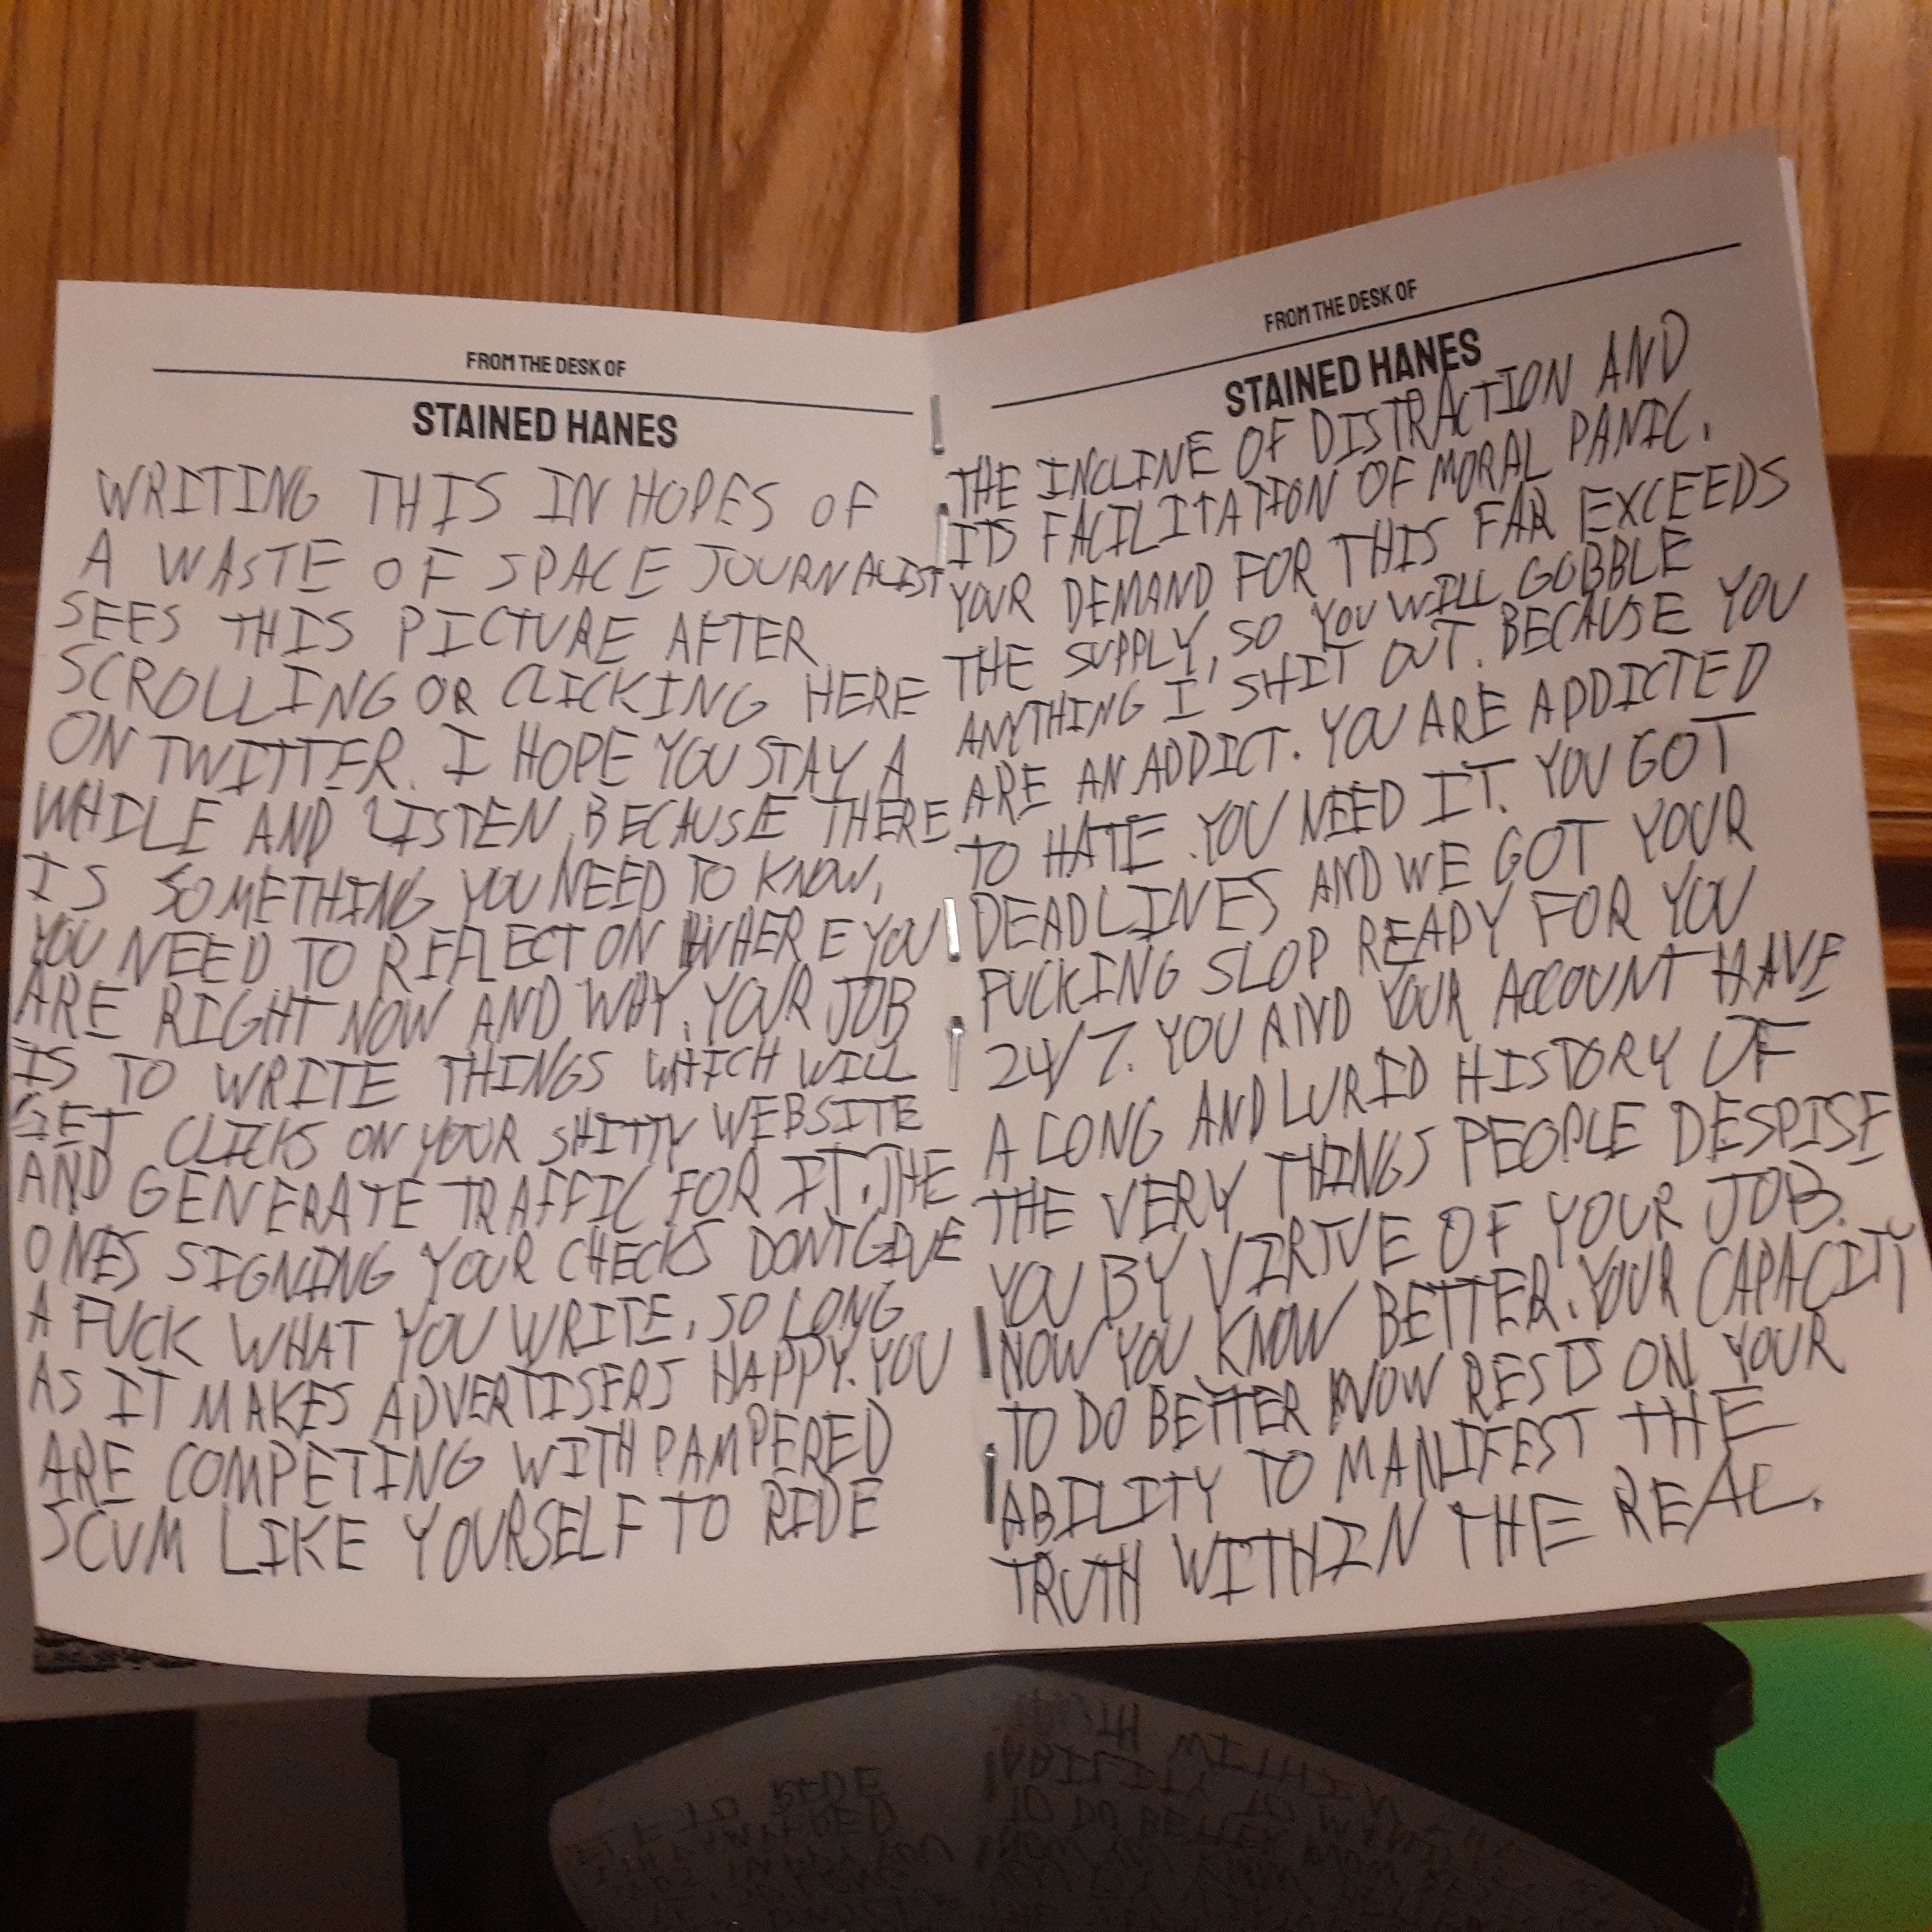 FROM THE DESK OF
STAINED HANES
WRITING THIS IN HOPES OF
A WASTE OF SPACE JOURNALIST
SEES THIS PICTURE AFTER
SCROLLING OR CLICKING HERE
ON TWITTER. I HOPE YOU STAY A
WHILE AND LISTEN, BECAUSE THERE
IS SOMETHING YOU NEED TO KNOW,
YOU NEED TO REFLECT ON WHERE YOU
ARE RIGHT NOW AND WHY. YOUR JOB
IS TO WRITE THINGS WHICH WILL
GET CLICKS ON YOUR SHITTY WEBSITE
AND GENERATE TRAFFIC FOR IT. THE
ONES SIGNING YOUR CHECKS DONT GIVE
A FUCK WHAT YOU WRITE, SO LONG
AS IT MAKES ADVERTISERS HAPPY. YOU
ARE COMPETING WITH PAMPERED
SCUM LIKE YOURSELF TO RIDE
FROM THE DESK OF
STAINED HANES
THE INCLINE OF DISTRACTION AND
ITS FACILITATION OF MORAL PANIC.
YOUR DEMAND FOR THIS FAR EXCEEDS
THE SUPPLY, SO YOU WILL GOBBLE
ANYTHING I SHIT OUT. BECAUSE YOU
ARE AN ADDICT. YOU ARE ADDICTED
TO HATE. YOU NEED IT. YOU GOT
DEADLINES AND WE GOT YOUR
FUCKING SLOP READY FOR YOU
24/7. YOU AND YOUR ACCOUNT HAVE
A LONG AND LURID HISTORY OF
THE VERY THINGS PEOPLE DESPISE
YOU BY VIRTUE OF YOUR JOB.
NOW YOU KNOW BETTER. YOUR CAPACITY
TO DO BETTER NOW RESTS ON YOUR
ABILITY TO MANIFEST THE
TRUTH WITHIN THE REAL.